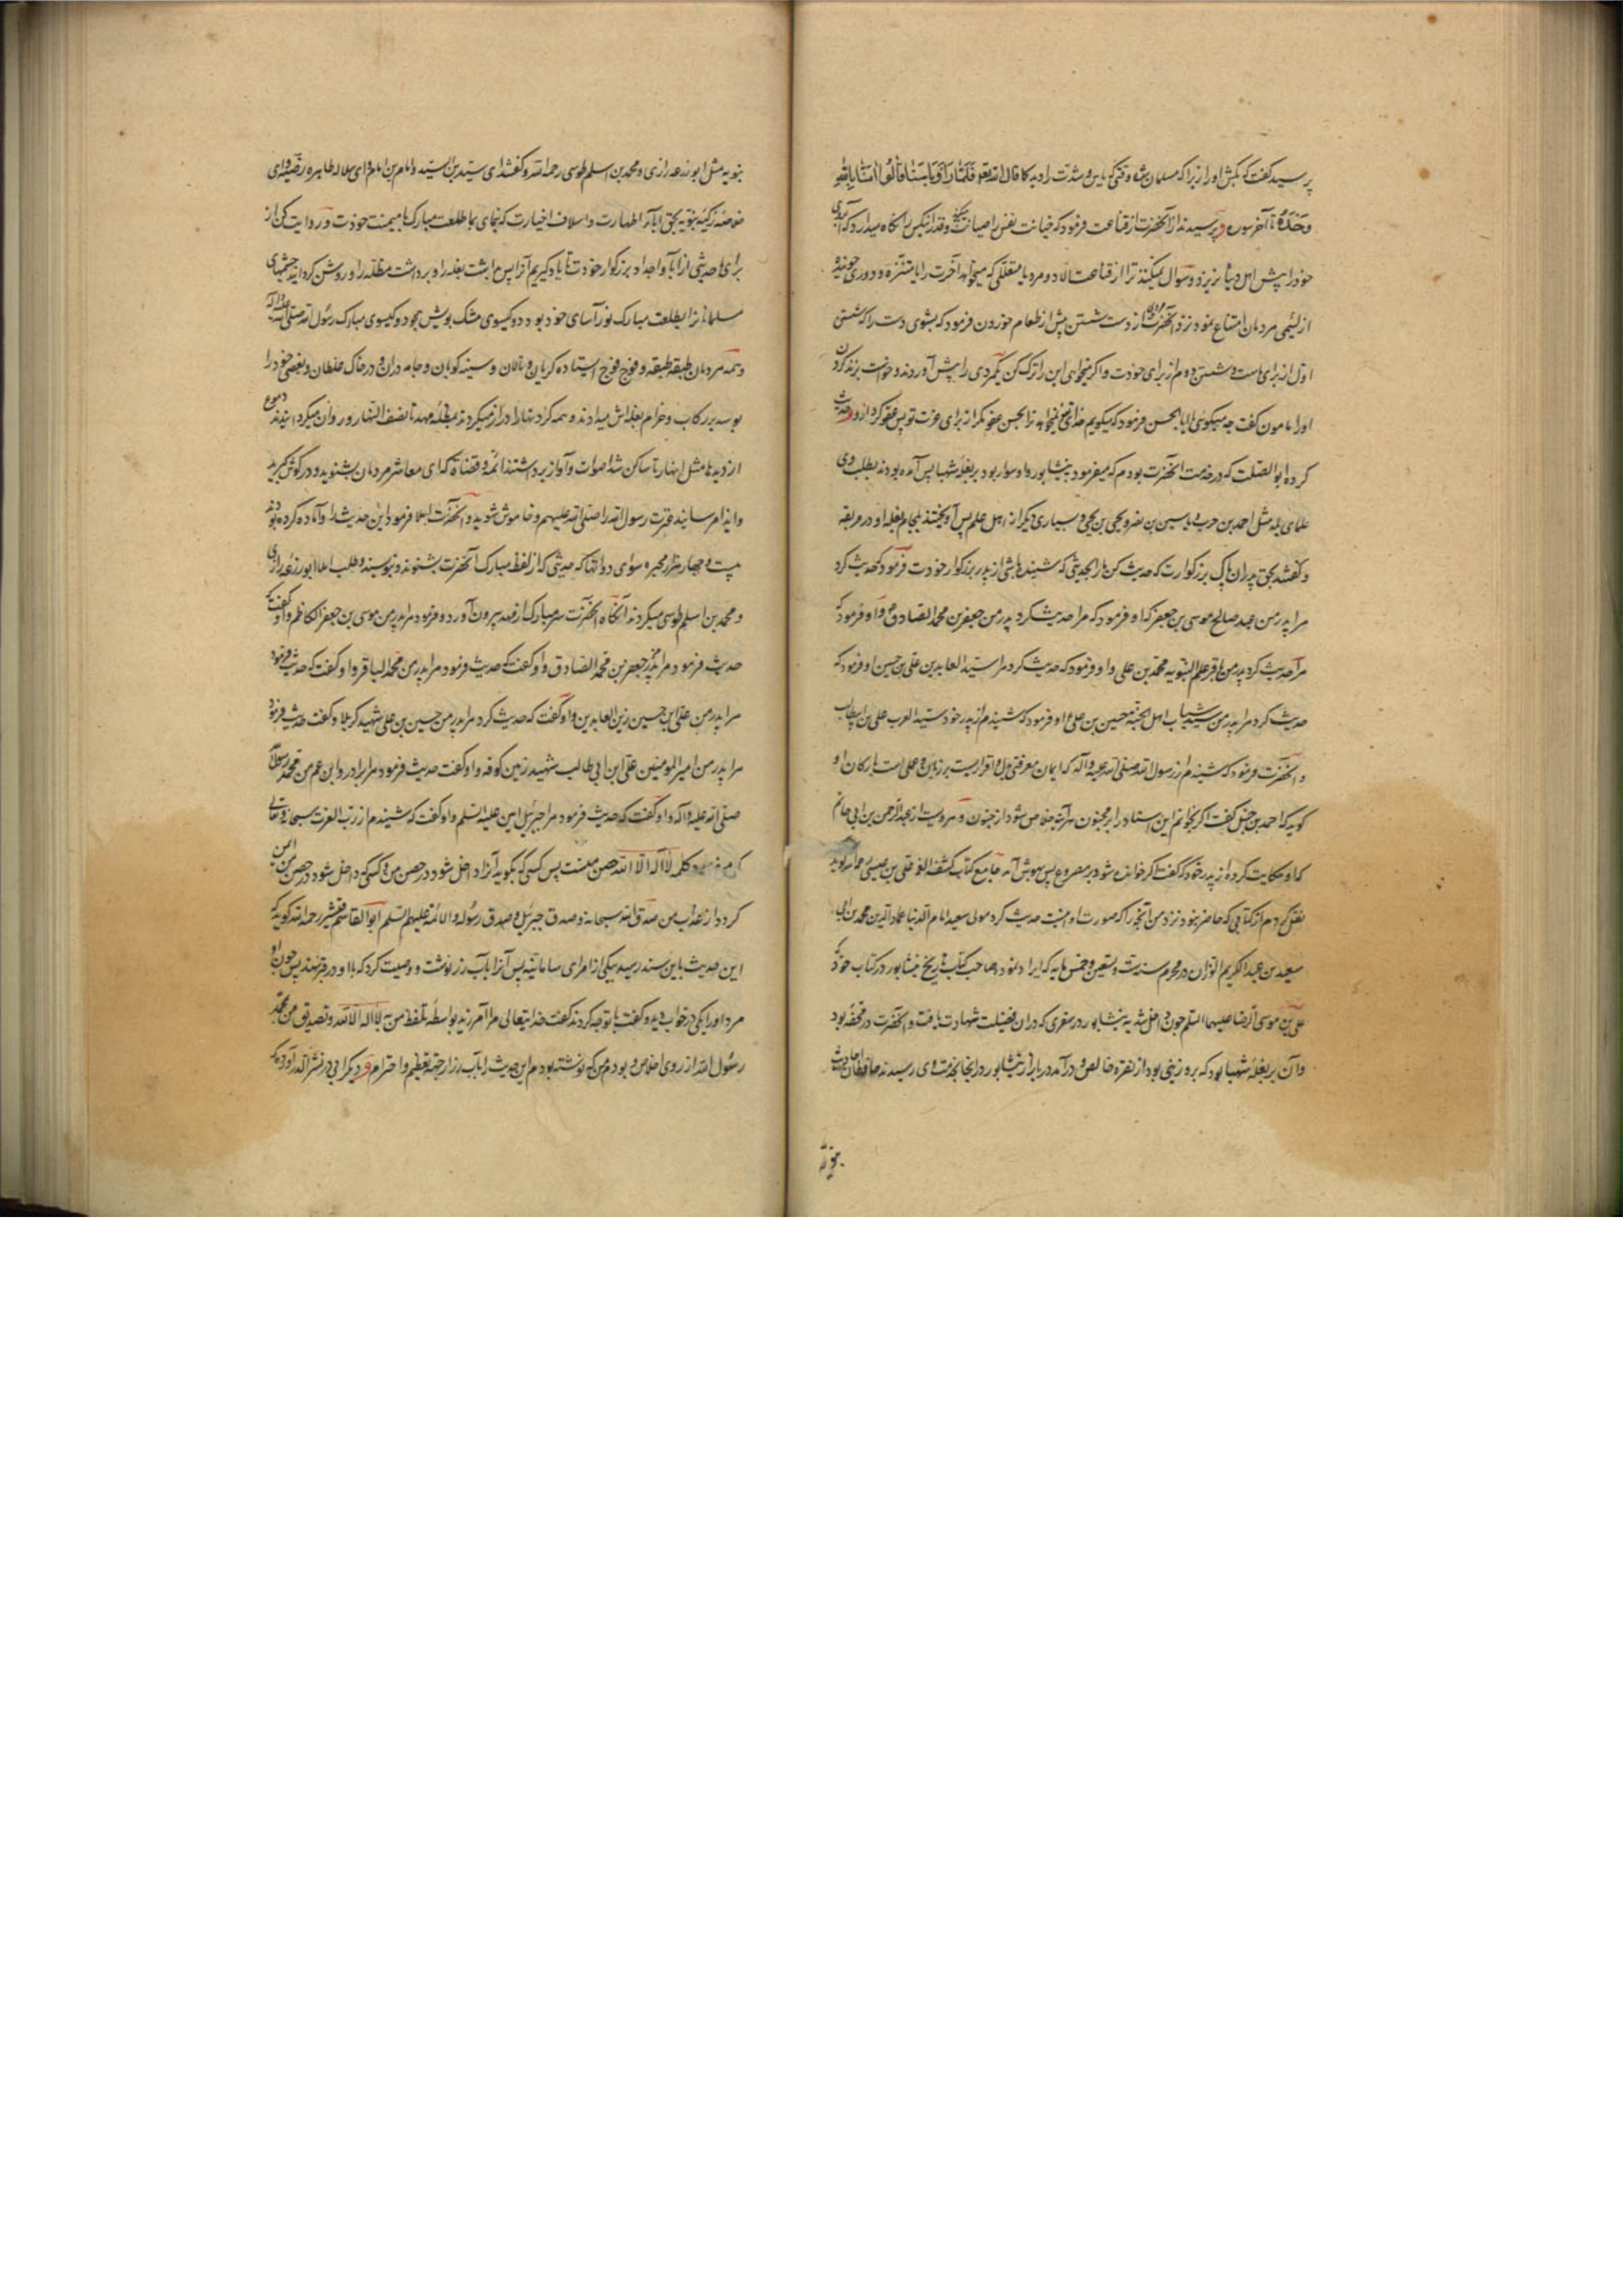 پرسید گفت که بکش او را زیرا که مسلمان شد وقتی که باس و شدت را دید کما قال الله تعالی فَلَمَّا رَاَوْا بَاْسَنَا قَالُوا آمَنَّا بِاللهِ
وَحْدَهُ تا آخر سوره و پرسیدند از آنحضرت از قناعت فرمود که
خود را پیش اهل دنیا نریزد و سوال نمیکند ترا از قناعت الا دو مرد یا متعللی که میخواهد آخرت را یا متنزه و دوری جوینده
از لئیمی مردمان امتناع نمود نزد آنحضرت از دست شستن پیش از طعام خوردن فرمود که بشوی دست را که شستن
اول از برای ماست و شستن دوم از برای خودت و اگر بخواهی این را ترک کن مردی را پیش آوردند و خواست بزند گردن
او را مامون گفت چه میگوئی یا ابا الحسن فرمود که میگویم خدای تعالی نمیخواهد ترا بحسن عفو مگر از برای عزت تو پس عفو کرد ازو و حدیث
کرده ابو الصلت که در خدمت آنحضرت بودم که میفرمود بنیشابور و او سوار بود بر بغله شهبا پس آمده بودند بطلب وی
علمای بلد مثل احمد بن حرب و یاسین بن نضر و یحیی بن یحیی و بسیاری دیگر از اهل علم پس آویختند بلجام بغله او در مربعه
و گفتند بحق پدران پاک بزرگوارت که حدیث کن ما را بحدیثی که شنیده باشی از پدر بزرگوار خودت فرمود که حدیث کرد
مرا پدر من عبد صالح موسی بن جعفر که او فرمود که مرا حدیث کرد پدر من جعفر بن محمد الصادق و او فرمود که
مرا حدیث کرد پدر من باقر علم النبویه محمد بن علی و او فرمود که حدیث کرد مرا سید العابدین علی بن حسین او فرمود که
حدیث کرد مرا پدر من سید شباب اهل الجنة حسین بن علی او فرمود که شنیدم از پدر خود سید العرب علی بن ابیطالب
و آنحضرت فرمود که شنیدم از رسول الله صلی الله علیه و آله که ایمان معرفتی بدل و اقراریست بزبان و عملی است بارکان و او
گوید که احمد بن حنبل گفت اگر بخوانم این اسناد را بر مجنون هر آینه خلاص شود از جنون و مرویست از عبدالرحمن بن ابی حاتم
که او حکایت کرده از پدر خود که گفت اگر خوانده شود بر مصروع پس بهوش آمد جامع کتاب کشف الغمه علی بن عیسی رحمه الله گوید
نقل کردم از کتابی که حاضر نبود نزد من آنچه را که صورت او اینست حدیث کرد مولی سعید امام الدنیا عماد الدین محمد بن ابی
سعید بن عبدالکریم الوزان در محرم سنه ست و تسعین و خمس مایه که ایراد نمود صاحب کتاب تاریخ نیشابور در کتاب خود که
علی بن موسی الرضا علیهما السلم چون داخل شد به نیشابور در سفری که دران فضیلت شهادت یافت و آنحضرت در محفه بود
و آن بر بغله شهبا بود که برو زینی بود از نقره خالص و درآمد در بازار نیشابور و آنجا بخدمت وی رسیدند حافظان احادیث
نبویه
نبویه مثل ابو زرعه رازی و محمد بن اسلم طوسی رحمه الله و گفتند ای سید بن السید و امام بن امام و ای سلاله طاهره رضیه و ای
خلاصه زکیه نبویه بحق آباء اطهارت و اسلاف اخیارت که بنمای بما طلعت مبارک با میمنت خودت و روایت کن از
برای ما حدیثی از آبا و اجداد بزرگوار خودت تا یاد گیریم آنرا پس باز داشت بغله را و برداشت مظله را و روشن گردانید چشمهای
مسلمانانرا بطلعت مبارک نورآسای خود و بود دو گیسوی مشک بویش چو دو گیسوی مبارک رسول الله صلی الله علیه و آله
و همه مردمان طبقه طبقه و فوج فوج ایستاده گریان و نالان و سینه کوبان و جامه دران و در خاک غلطان و بعضی خود را
بوسه بر رکاب و خرام بغله اش میدادند و همه گردنها را دراز میکردند بمظله مهد تا نصف النهار و روان میگردانیدند دموع
از دیدها مثل انهار تا ساکن شد اصوات و آواز برداشتند ائمه و قضاة که ای معاشر مردمان بشنوید و در گوش گیرید
و ایذا مرسانید عترت رسول الله را صلی الله علیهم و خاموش شوید و آنحضرت املا فرمود این حدیث را و آماده کرده بودند
بیست و چهار هزار محبره سوای دواتها که حدیثی که از لفظ مبارک آنحضرت بشنوند و بنویسند و طلب املا ابو زرعه رازی
و محمد بن اسلم طوسی میکردند آنگاه آنحضرت سر مبارک از مهد بیرون آورد و فرمود مرا پدر من موسی بن جعفر الکاظم و او گفت که
حدیث فرمود مرا پدرم جعفر بن محمد الصادق و او گفت که حدیث فرمود مرا پدر من محمد الباقر و او گفت که حدیث فرمود
مرا پدر من علی ابن حسین زین العابدین و او گفت که حدیث کرد مرا پدر من حسین بن علی شهید کربلا و گفت حدیث فرمود
مرا پدر من امیر المومنین علی ابن ابی طالب شهید زمین کوفه و او گفت حدیث فرمود مرا برادر و ابن عم من محمد رسول الله
صلی الله علیه و آله و او گفت که حدیث فرمود مرا جبرئیل امین علیه السلم و او گفت که شنیدم از رب العزت سبحانه و تعالی
کلمه لا اله الا الله حصن منست پس کسی که بگوید آنرا داخل شود در حصن من و کسی که داخل شود در حصن من ایمن
گردد از عذاب من صدق الله سبحانه و صدق جبرئیل و صدق رسوله و الائمة علیهم السلم ابو القاسم قشیری رحمه الله گوید که
این حدیث باین سند رسید بیکی از امرای سامانیه پس آنرا بآب زر نوشت و وصیت کرد که با او در قبر نهند پس چون او
مرد او را یکی در خواب دید و گفت با تو چه کردند گفت خدایتعالی مرا آمرزید بواسطه تلفظ من به لا اله الا الله و تصدیق من محمد
رسول الله از روی اخلاص و بودم من که نوشته بودم این حدیث را بآب زر از جهة تعظیم و احترام و دیگر ابی در نثر الدرر آورده که